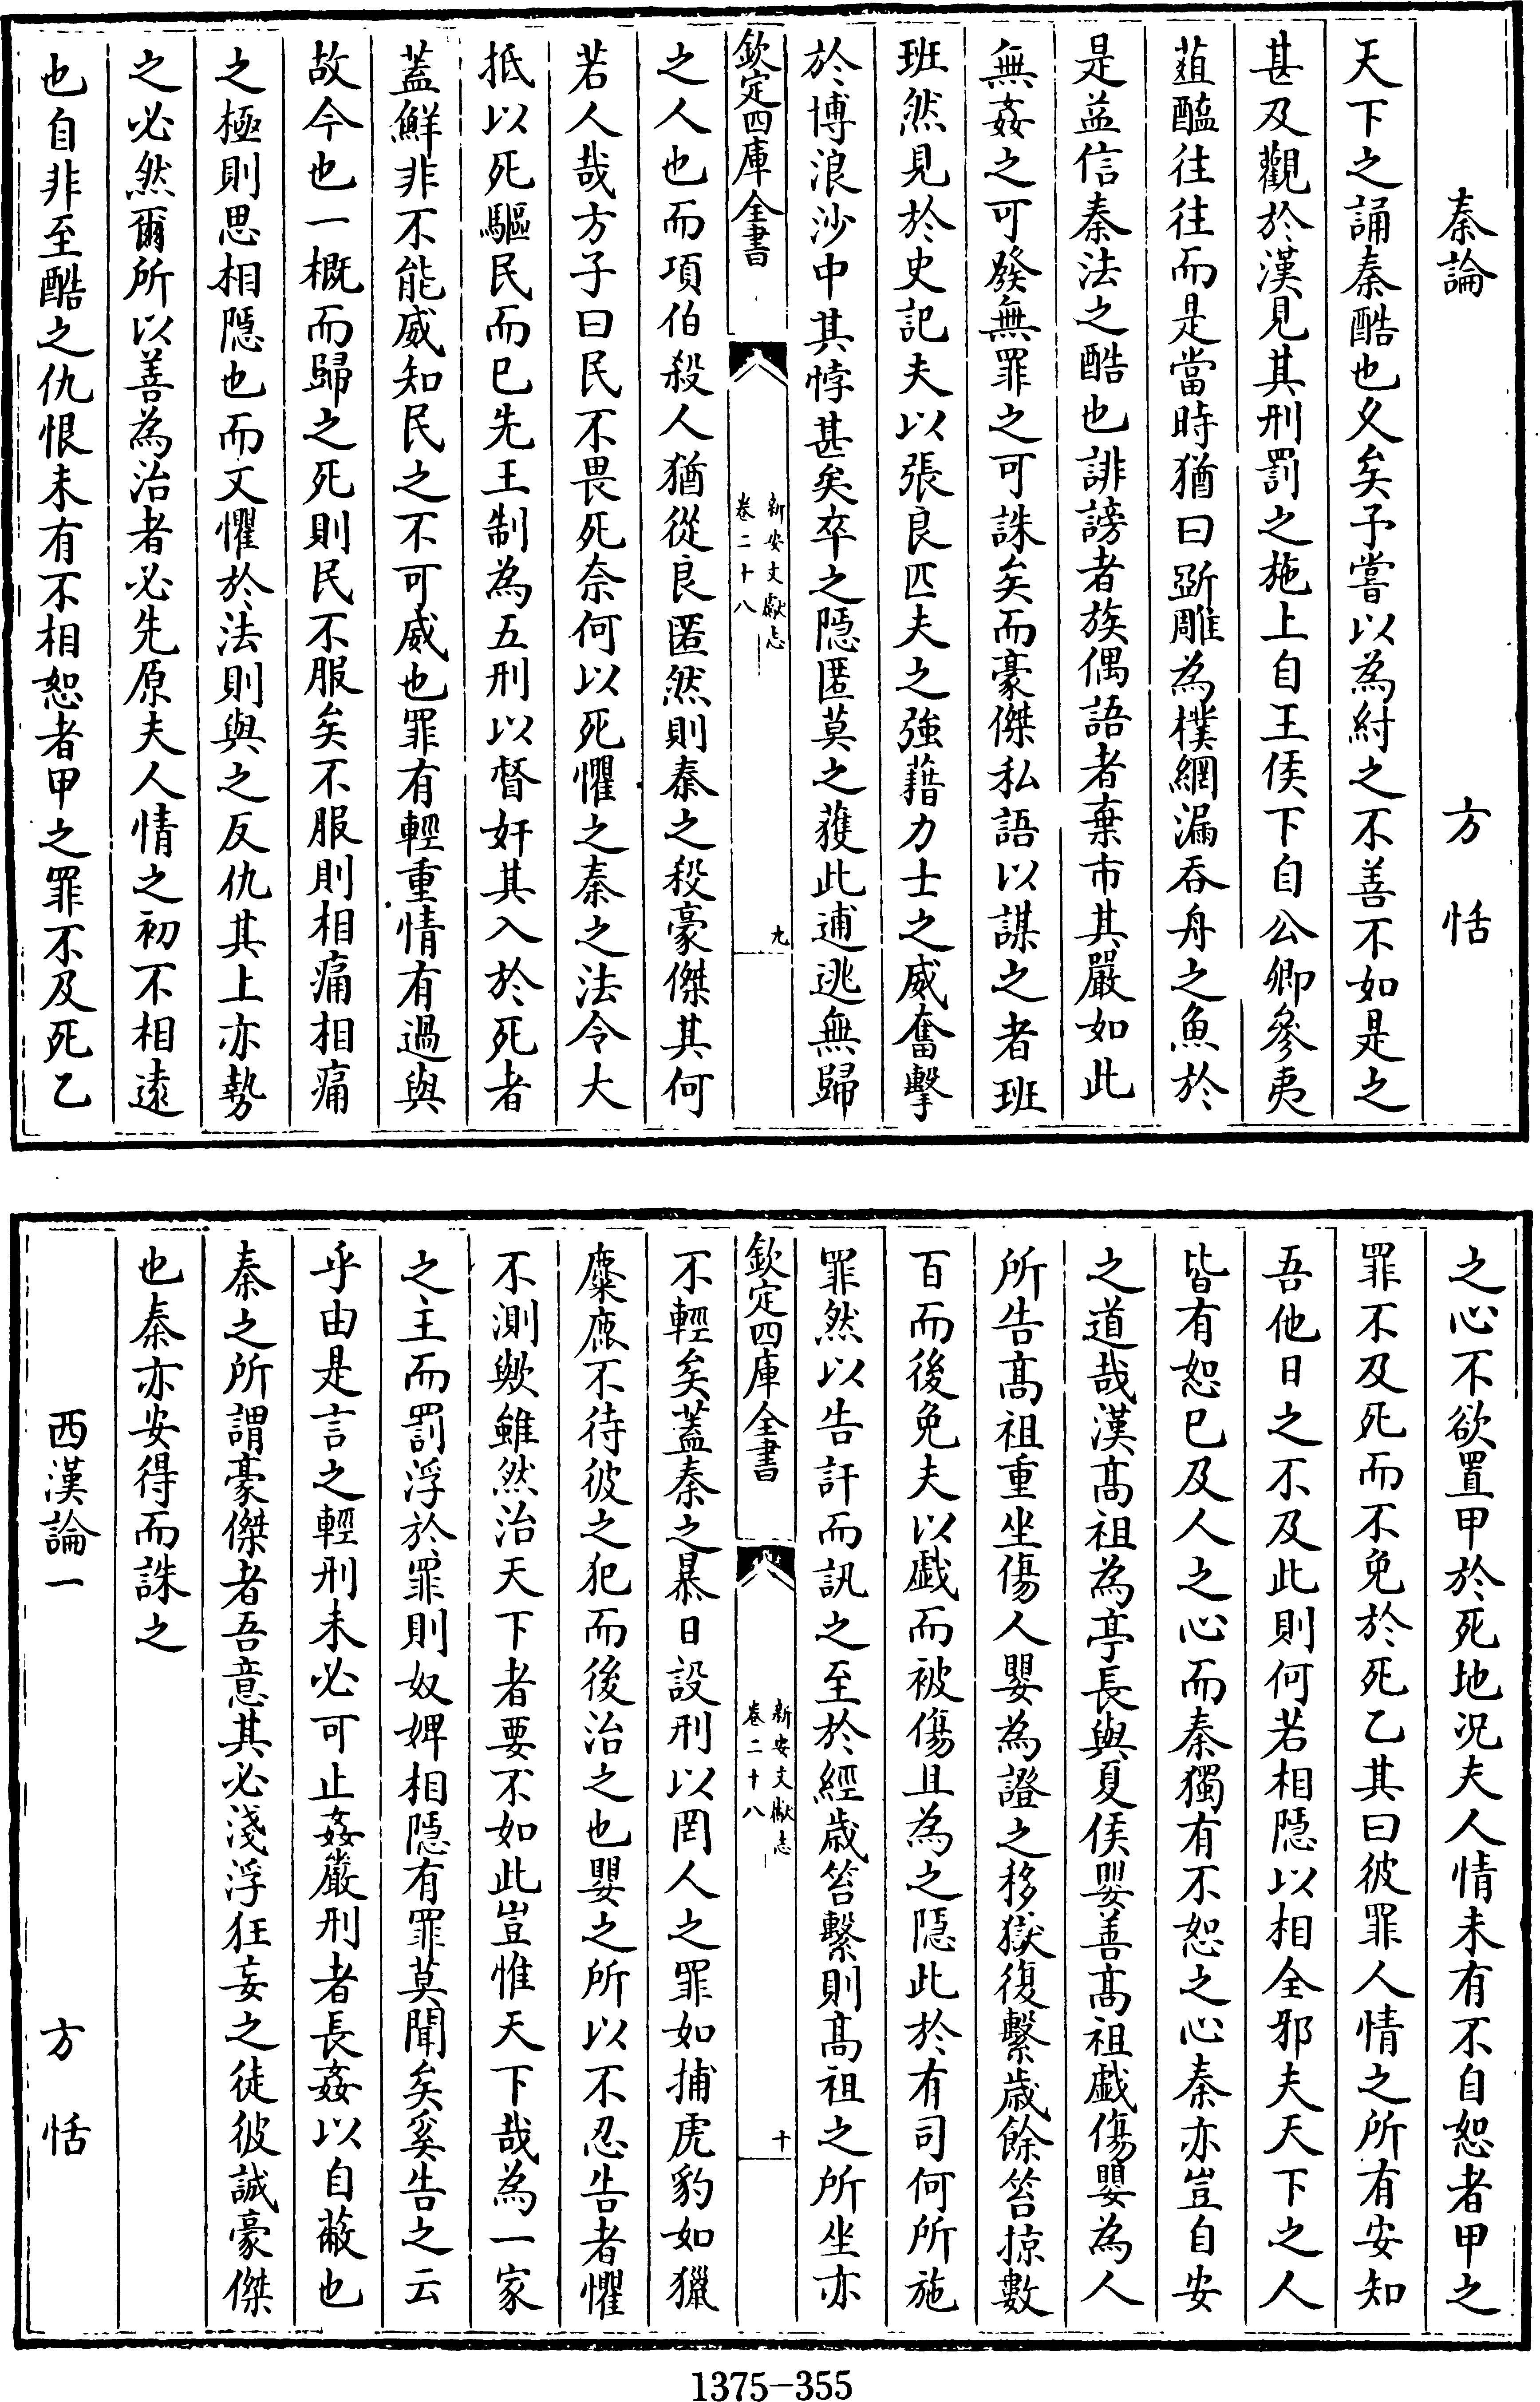 秦論　方恬
天下之誦秦酷也乆矣予嘗以為紂之不善不如是之
甚及觀於漢見其刑罰之施上自王侯下自公卿參夷
葅醢往往而是當時猶曰斵雕為樸網漏吞舟之魚於
是益信秦法之酷也誹謗者族偶語者棄市其嚴如此
無姦之可發無罪之可誅矣而豪傑私語以謀之者班
班然見於史記夫以張良匹夫之強藉力士之威奮擊
於博浪沙中其悖甚矣卒之隱匿莫之獲此逋逃無歸
欽定四庫全書
新安文獻志
卷二十八
九
之人也而項伯殺人猶從良匿然則秦之殺豪傑其何
若人哉方子曰民不畏死奈何以死懼之秦之法令大
抵以死驅民而已先王制為五刑以督奸其入於死者
蓋鮮非不能威知民之不可威也罪有輕重情有過與
故今也一概而歸之死則民不服矣不服則相痛相痛
之極則思相隱也而又懼於法則與之反仇其上亦勢
之必然爾所以善為治者必先原夫人情之初不相遠
也自非至酷之仇恨未有不相恕者甲之罪不及死乙
之心不欲置甲於死地况夫人情未有不自恕者甲之
罪不及死而不免於死乙其曰彼罪人情之所有安知
吾他日之不及此則何若相隱以相全邪夫天下之人
皆有恕已及人之心而秦獨有不恕之心秦亦豈自安
之道哉漢髙祖為亭長與夏侯嬰善髙祖戯傷嬰為人
所告髙祖重坐傷人嬰為證之移獄復繫嵗餘笞掠數
百而後免夫以戯而被傷且為之隱此於有司何所施
罪然以告訐而訊之至於經嵗笞繫則髙祖之所坐亦
欽定四庫全書
新安文獻志
卷二十八
十
不輕矣蓋秦之暴日設刑以罔人之罪如捕虎豹如獵
麋鹿不待彼之犯而後治之也嬰之所以不忍告者懼
不測歟雖然治天下者要不如此豈惟天下哉為一家
之主而罰浮於罪則奴婢相隱有罪莫聞矣奚告之云
乎由是言之輕刑未必可止姦嚴刑者長姦以自蔽也
秦之所謂豪傑者吾意其必淺浮狂妄之徒彼誠豪傑
也秦亦安得而誅之
西漢論一　方恬
1375-355